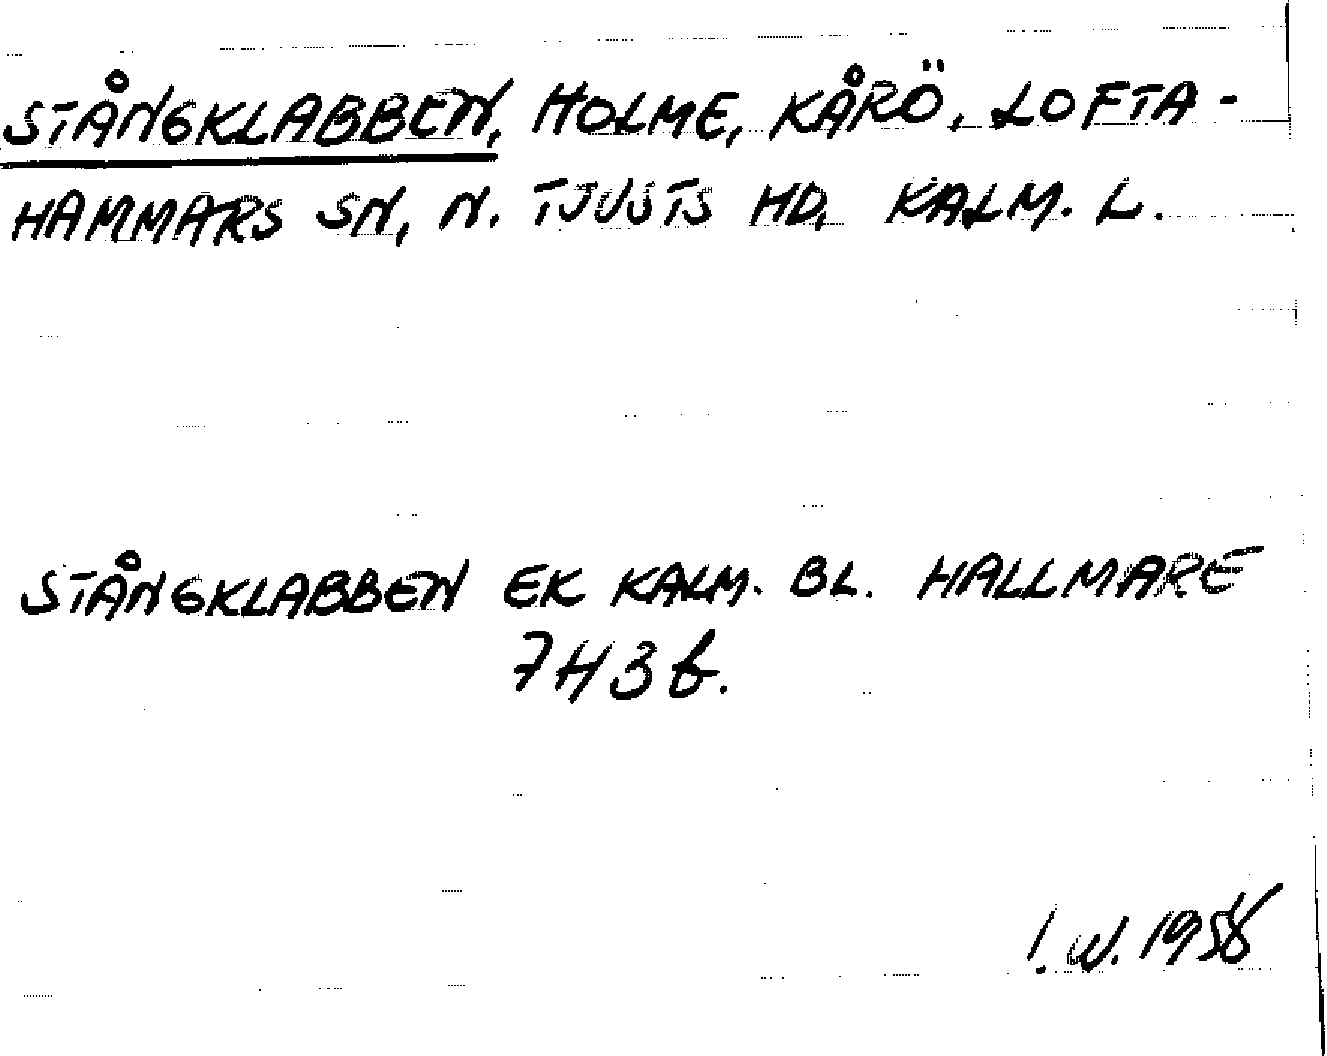 STÅNGKLABBEN, HOLME, KÅRÖ, LOFTA-
HAMMARS SN, N. TJUSTS HD, KALM. L.
STÅNGKLABBEN EK KALM. BL. HALLMARE
7H3b.
I.W. 1958